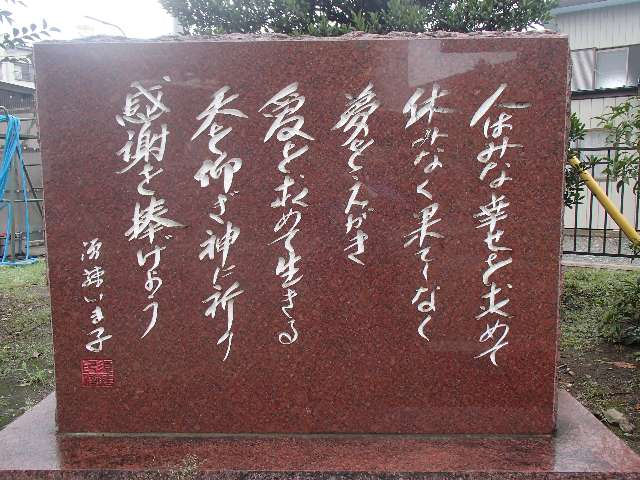 人はみな幸せを求めて
休みなく果てしなく
夢をえがき
愛を求めて生きる
天を仰ぎ神に祈り
感謝を捧げよう
いま子